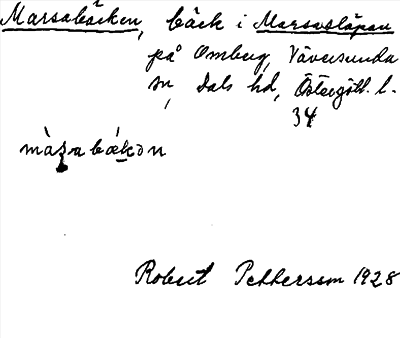 Marsabäcken, bäck i Marsaslåpan
på Omberg, Väversunda
sn, Dals hd, Östergötl. l.
34
màʂabækən
Robert Pettersson 1928